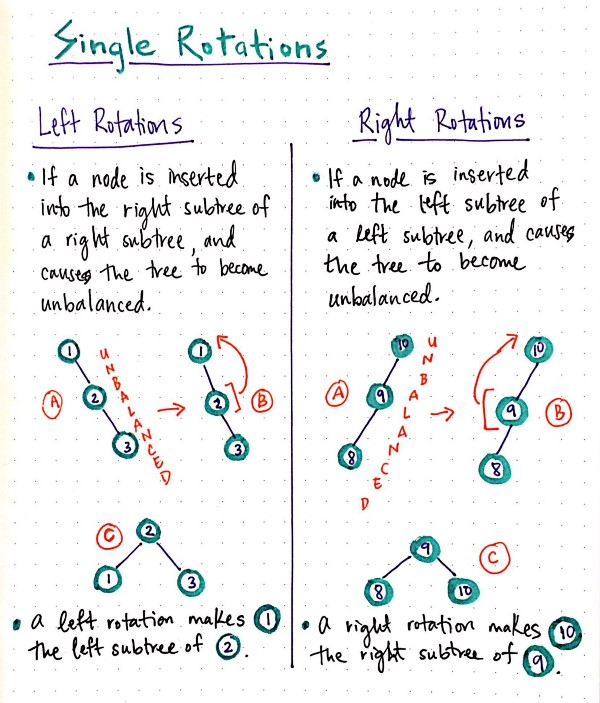 Single Rotations
Left Rotations
• If a node is inserted
into the right subtree of
a right subtree, and
causes the tree to become
unbalanced.
1
2
3
UNBALANCED
A
→
1
2
3
B
C
2
1
3
• a left rotation makes 1
the left subtree of 2.
Right Rotations
• If a node is inserted
into the left subtree of
a left subtree, and causes
the tree to become
unbalanced.
10
9
8
UNBALANCED
A
→
10
9
8
B
9
C
8
10
• a right rotation makes 10
the right subtree of 9.